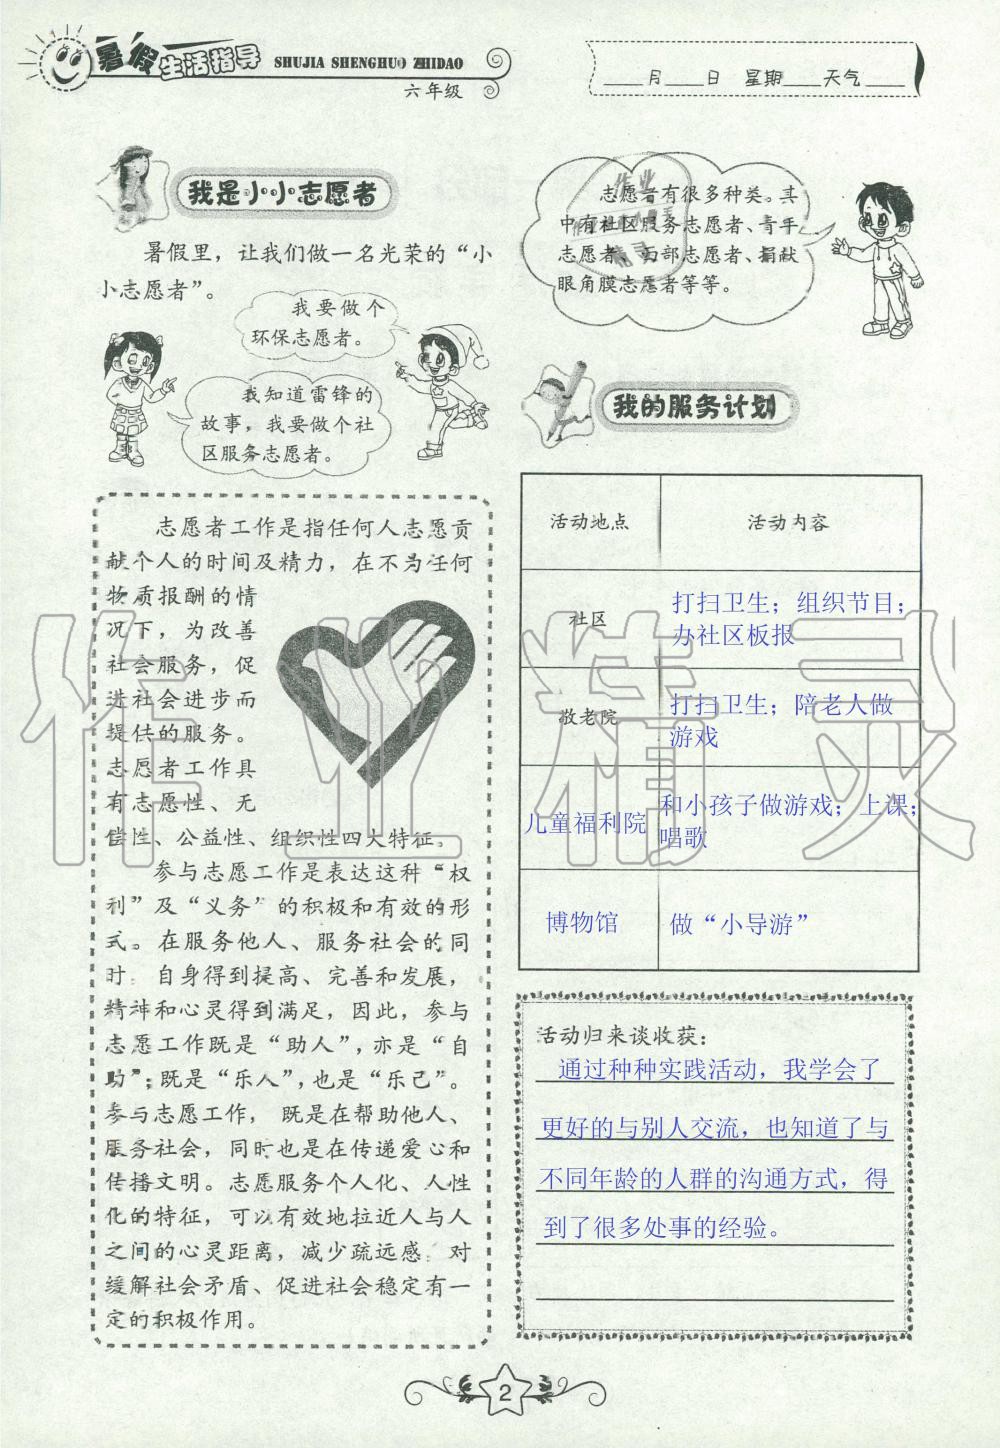 暑假生活指导 SHUJIA SHENGHUO ZHIDAO
六年级
____月____日 星期____天气____
我是小小志愿者
暑假里，让我们做一名光荣的“小
小志愿者”。
我要做个
环保志愿者。
我知道雷锋的
故事，我要做个社
区服务志愿者。
志愿者工作是指任何人志愿贡
献个人的时间及精力，在不为任何
物质报酬的情
况下，为改善
社会服务，促
进社会进步而
提供的服务。
志愿者工作具
有志愿性、无
偿性、公益性、组织性四大特征。
参与志愿工作是表达这种“权
利”及“义务”的积极和有效的形
式。在服务他人、服务社会的同
时，自身得到提高、完善和发展，
精神和心灵得到满足，因此，参与
志愿工作既是“助人”，亦是“自
助”；既是“乐人”，也是“乐己”。
参与志愿工作，既是在帮助他人、
服务社会，同时也是在传递爱心和
传播文明。志愿服务个人化、人性
化的特征，可以有效地拉近人与人
之间的心灵距离，减少疏远感，对
缓解社会矛盾、促进社会稳定有一
定的积极作用。
志愿者有很多种类。其
中有社区服务志愿者、青年
志愿者、西部志愿者、捐献
眼角膜志愿者等等。
我的服务计划
活动地点 活动内容
社区 打扫卫生；组织节目；
办社区板报
敬老院 打扫卫生；陪老人做
游戏
儿童福利院 和小孩子做游戏；上课；
唱歌
博物馆 做“小导游”
活动归来谈收获：
通过种种实践活动，我学会了
更好的与别人交流，也知道了与
不同年龄的人群的沟通方式，得
到了很多处事的经验。
2
作业精灵